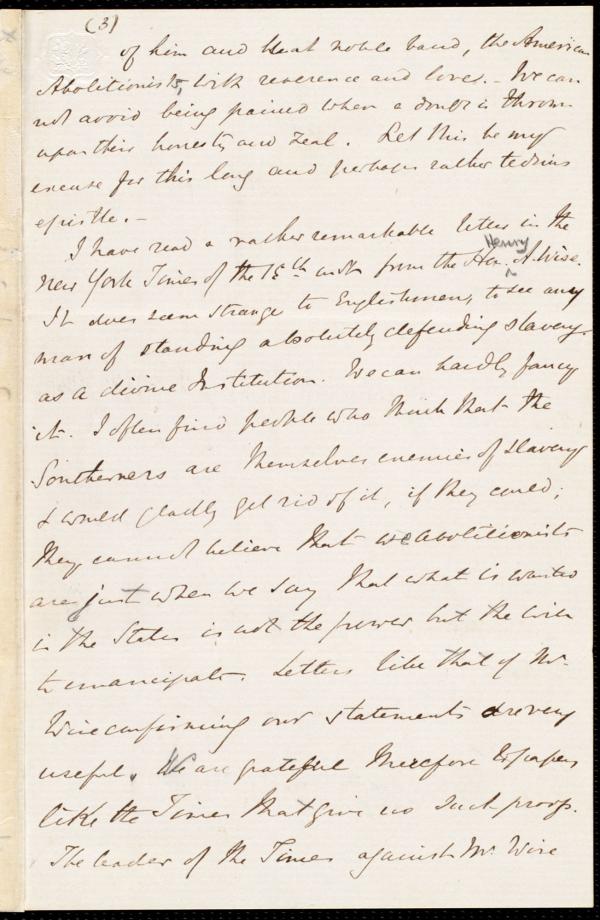 (3)
of him and that noble band, the American
Abolitionists, with reverence and love. - We can
not avoid being pained when a doubt is thrown
upon their honesty and zeal. Let this be my
excuse for this long and perhaps rather tedious
epistle. -
I have read a rather remarkable letter in the
Henry
New York Times of the 15th ult from the Hon. A. Wise.
It does seem strange to Englishmen, to see any
man of standing absolutely defending slavery
as a divine Institution. We can hardly fancy
it. I often find people who think that the
Southerners are themselves enemies of slavery
& would gladly get rid of it, if they could;
they cannot believe that we abolitionists
are just when we say that what is wanted
in the States is not the power but the will
to emancipate. Letters like that of Mr.
Wise confirming our statements are very
useful. We are grateful therefore to papers
like the Times that give us such proofs.
The leader of the Times against Mr. Wise